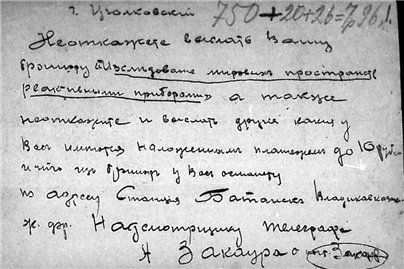 г. Циолковский 750+20+26=7р96к.
Не откажите выслать Вашу
брошюру «Изследование мировых пространств
реактивными приборами» а также
не откажите и выслать другия какия у
Вас имеются наложенным платежем до 10 рублей
и что из брошюр у Вас
по адресу Станция Батайск Владикавказск
ж. др. Надсмотрщику телеграфа
А Закаура